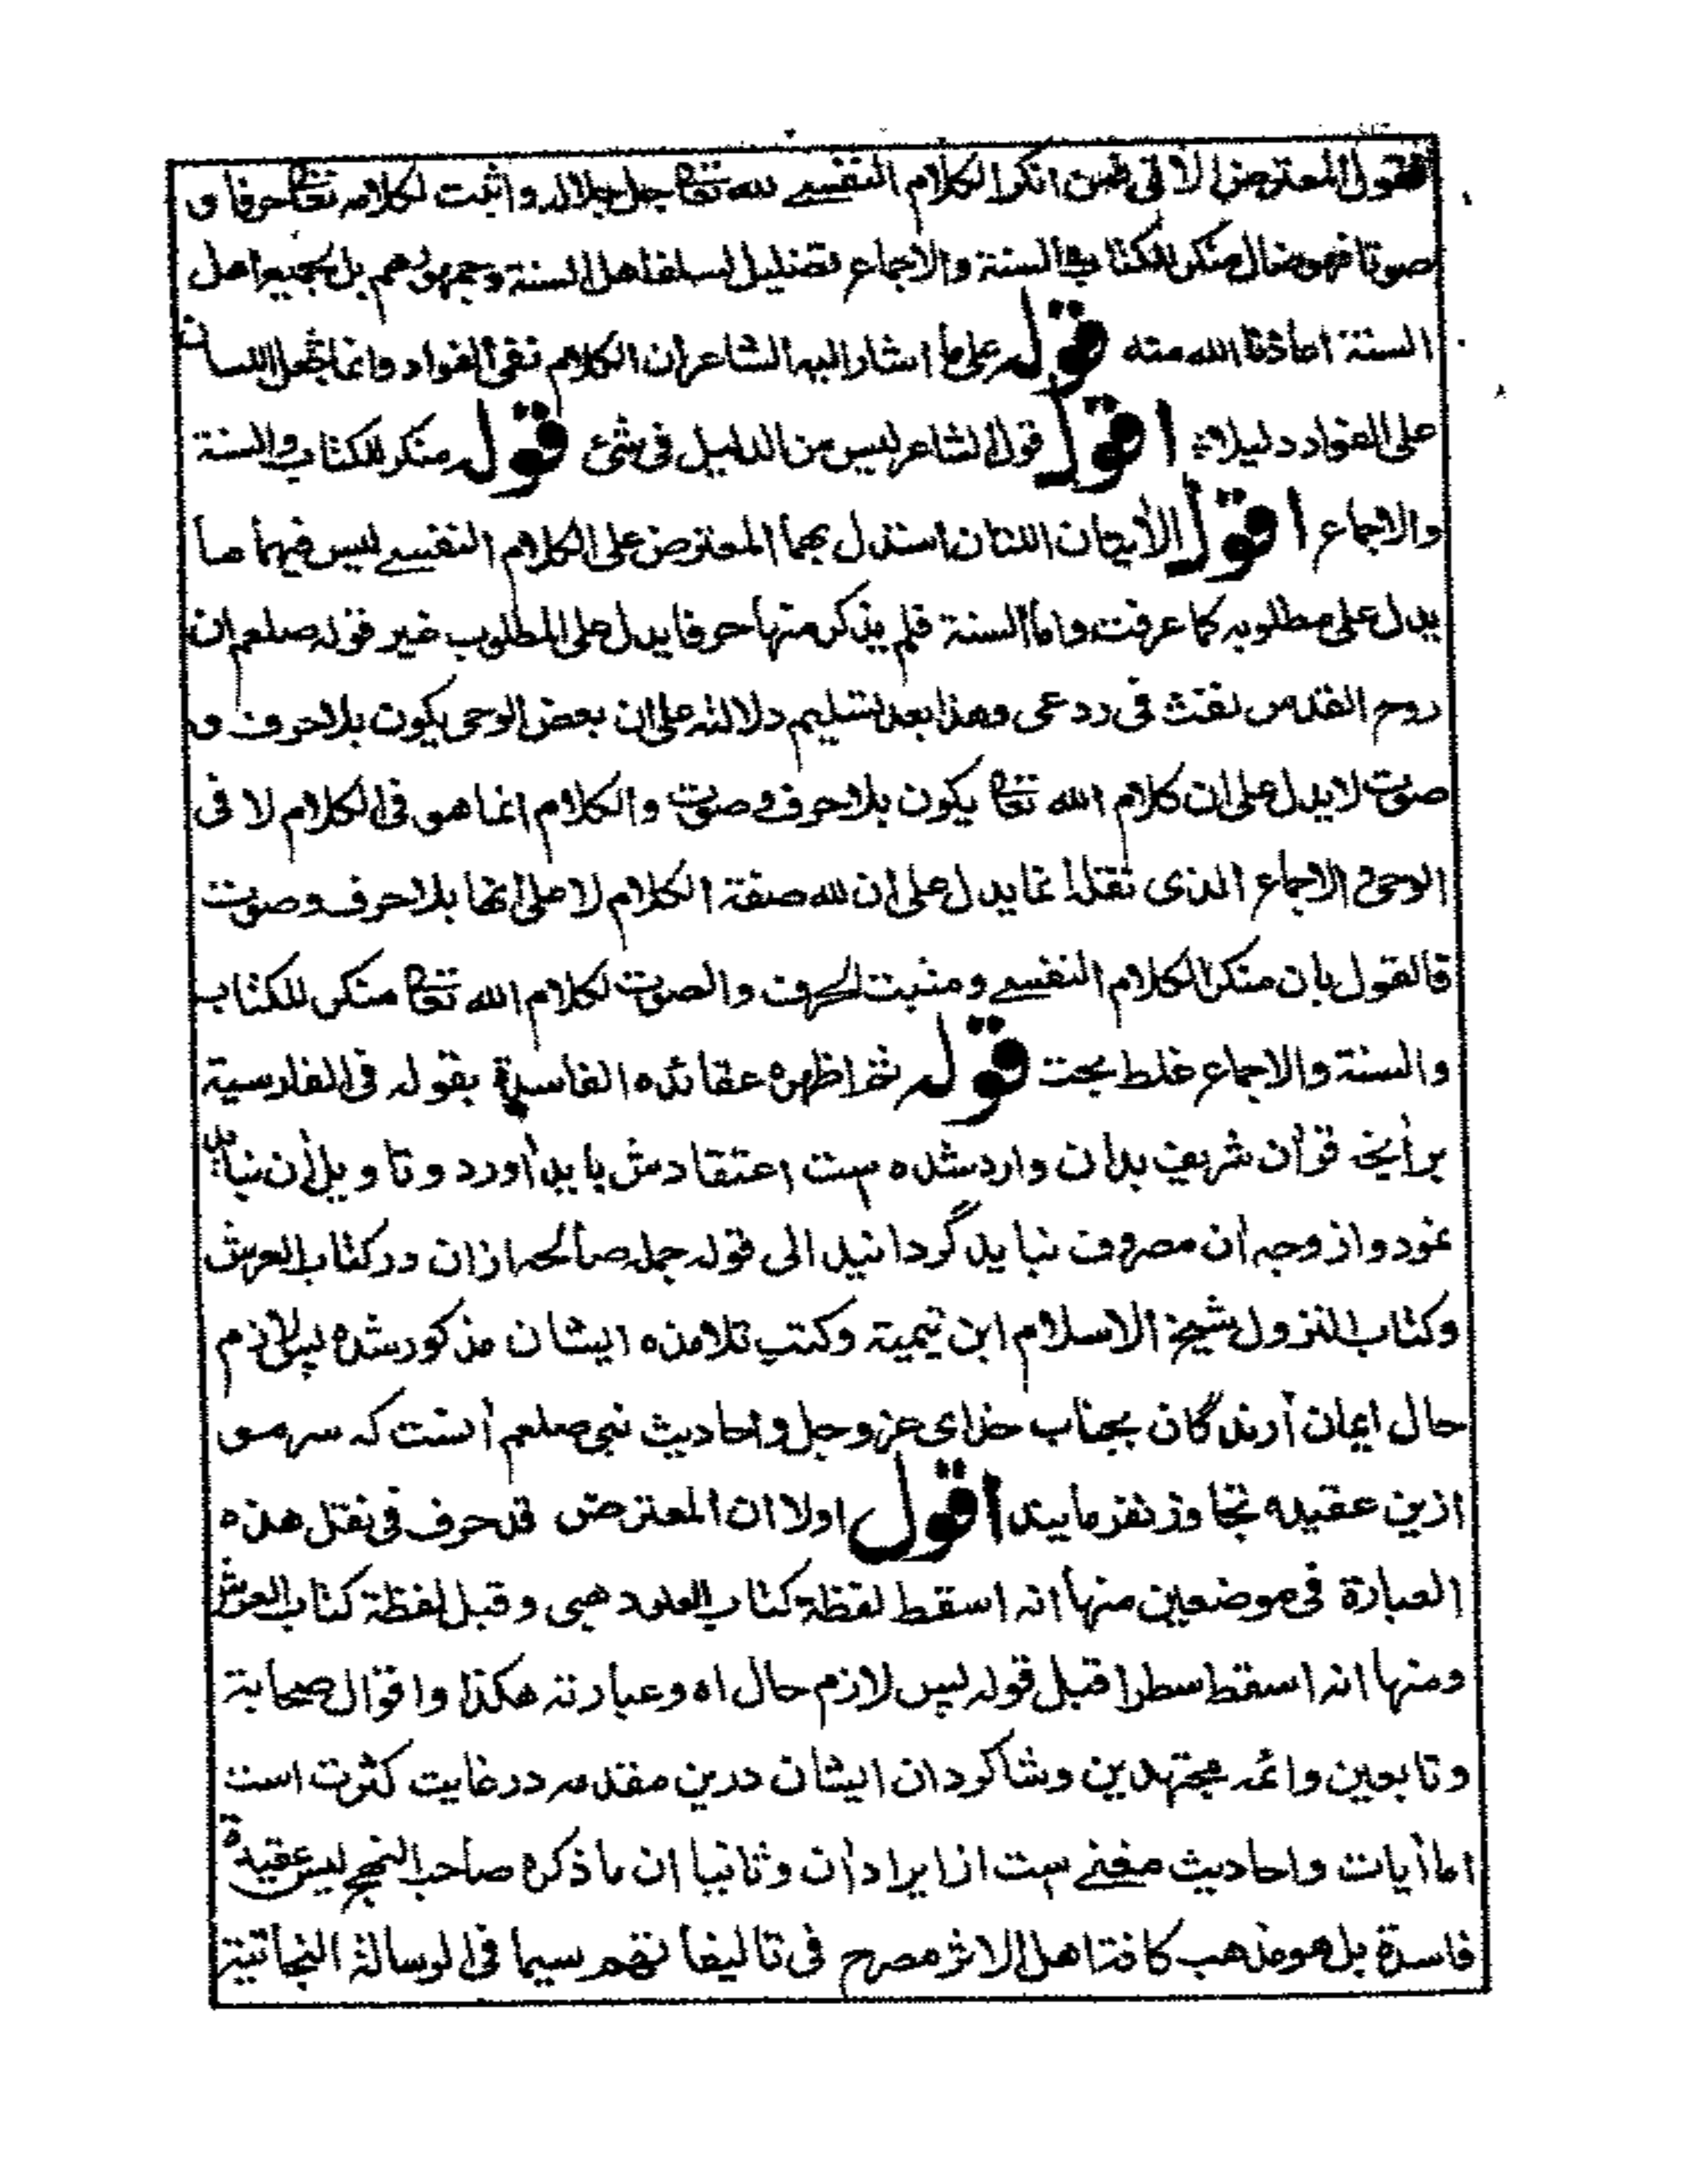 فقول المعترض الاتى فمن انكر الكلام النفسے لله تعالى جل جلاله واثبت لكلامه تعالى حرفا و
صوتا فهو ضال منكر للكتاب والسنة والاجماع تضليل لسلف اهل السنة وجمهورهم بل لجميع اهل
السنة اعاذنا الله منه قوله على ما اشار اليه الشاعر ان الكلام لفى الفواد وانما جعل اللسان
على الفواد دليلاء اقول قول الشاعر ليس من الدليل فى شئ قوله منكر للكتاب والسنة
والاجماع اقول الأيتان اللتان استدل بهما المعترض على الكلام النفسے ليس فيهما ما
يدل على مطلوبه كما عرفت واما السنة فلم يذكر منها حرفا يدل على المطلوب غير قوله صلعم ان
روح القدس نفث فى روعى وهذا بعد تسليم دلالته على ان بعض الوحى يكون بلا حرف و
صوت لا يدل على ان كلام الله تعالى يكون بلا حرف وصوت والكلام انما هو فى الكلام لا فى
الوحى والاجماع الذى نقله انما يدل على ان لله صفة الكلام لا على انها بلا حرف وصوت
فالقول بان منكر الكلام النفسے ومثبت الحرف والصوت لكلام الله تعالى منكر للكتاب
والسنة والاجماع غلط بحت قوله ثم اظهره عقائده الفاسدة بقوله فى الفارسية
برأنچه قرأن شريف بدان وارد شده ست اعتقادش بايد أورد وتاويل أن نبايد
نمود واز وجه أن مصروف نبايد گردانيد الى قوله جمله صالحه ازان در كتاب العرش
وكتاب النزول شيخ الاسلام ابن تيمية وكتب تلامذه ايشان مذكور شده پس لازم
حال ايمان أرندگان بجناب خداى عزوجل واحاديث نبى صلعم أنست كه سر مو
ازين عقيده تجاوز نفرمايند اقول اولا ان المعترض قد حرف فى نقل هذه
العبارة فى موضعين منها انه اسقط لفظة كتاب العلو ذهبى وقبل لفظة كتاب العرش
ومنها انه اسقط سطرا قبل قوله پس لازم حال اه وعبارته هكذا واقوال صحابة
وتابعين وائمه مجتهدين وشاكردان ايشان درين مقدمه در غايت كثرت است
اما أيات واحاديث مغنے ست از ايراد أن وثانيا ان ما ذكره صاحب النهج ليس عقيدة
فاسدة بل هو مذهب كافة اهل الاثر مصرح فى تاليفاتهم سيما فى الرسالة النجاتية